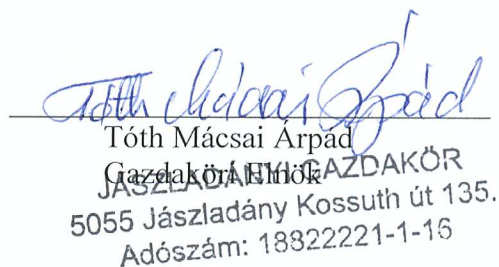 Tóth Mácsai Árpád
Tóth Mácsai Árpád
Gazdaköri Elnök
JÁSZLADÁNYI GAZDAKÖR
5055 Jászladány Kossuth út 135.
Adószám: 18822221-1-16